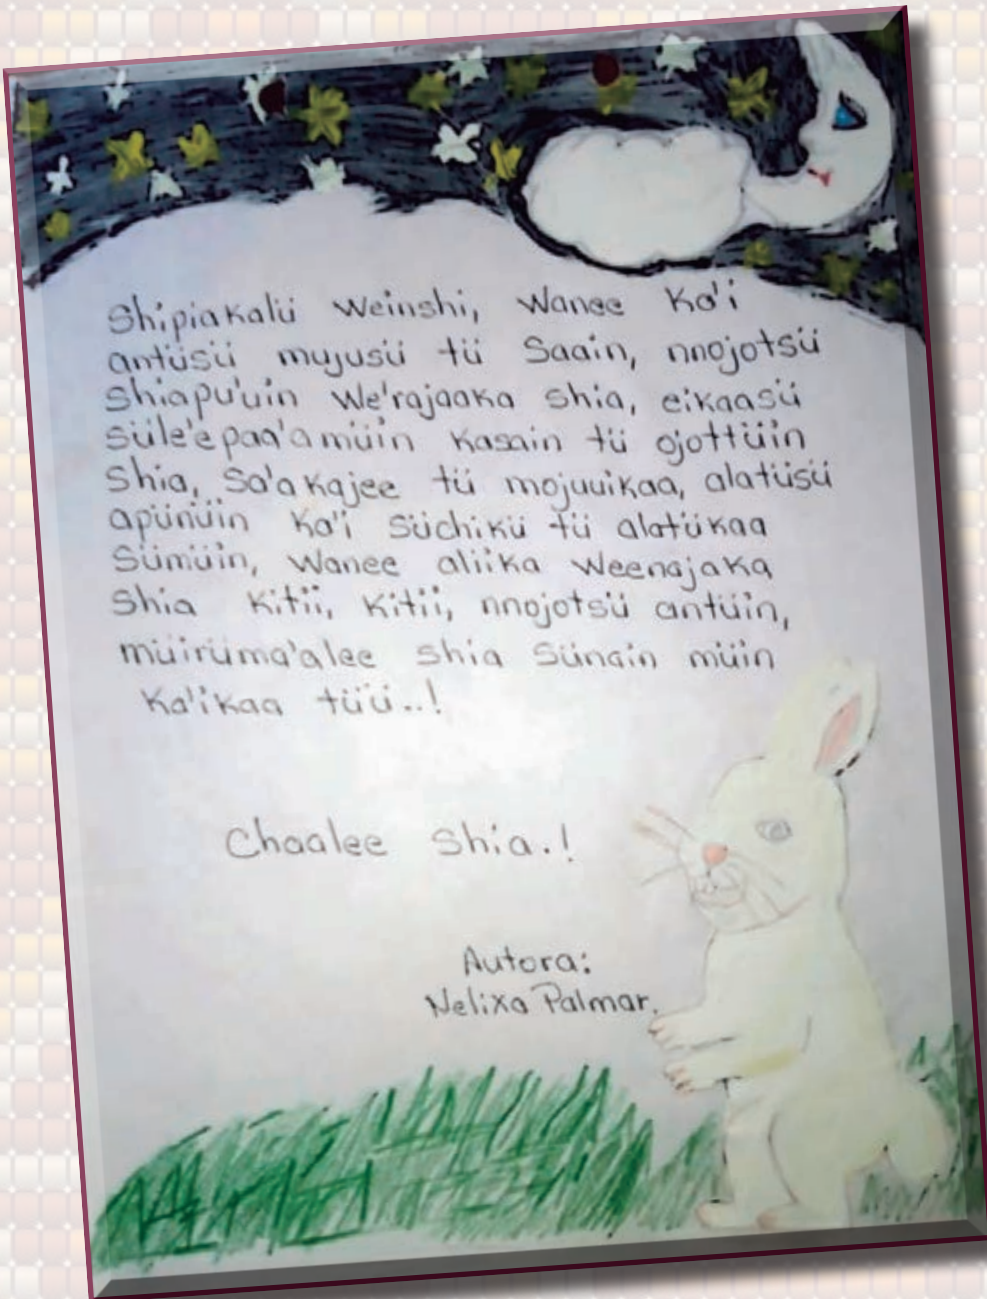 Shipiakalü weinshi, wanee ka'i
antüsü mujusü tü Saain, nnojotsü
Shiapu'uin we'rajaaka shia, eikaasü
süle'epaa'amüin kasain tü ojottüin
Shia, Sa'akajee tü mojuuikaa, alatüsü
apünüin ka'i süchikü tü alatükaa
Sümüin, wanee aliika weenajaka
Shia kitii, kitii, nnojotsü antüin,
müirüma'alee shia sünain müin
ka'ikaa tüü..!
Chaalee Shia.!
Autora:
Nelixa Palmar.